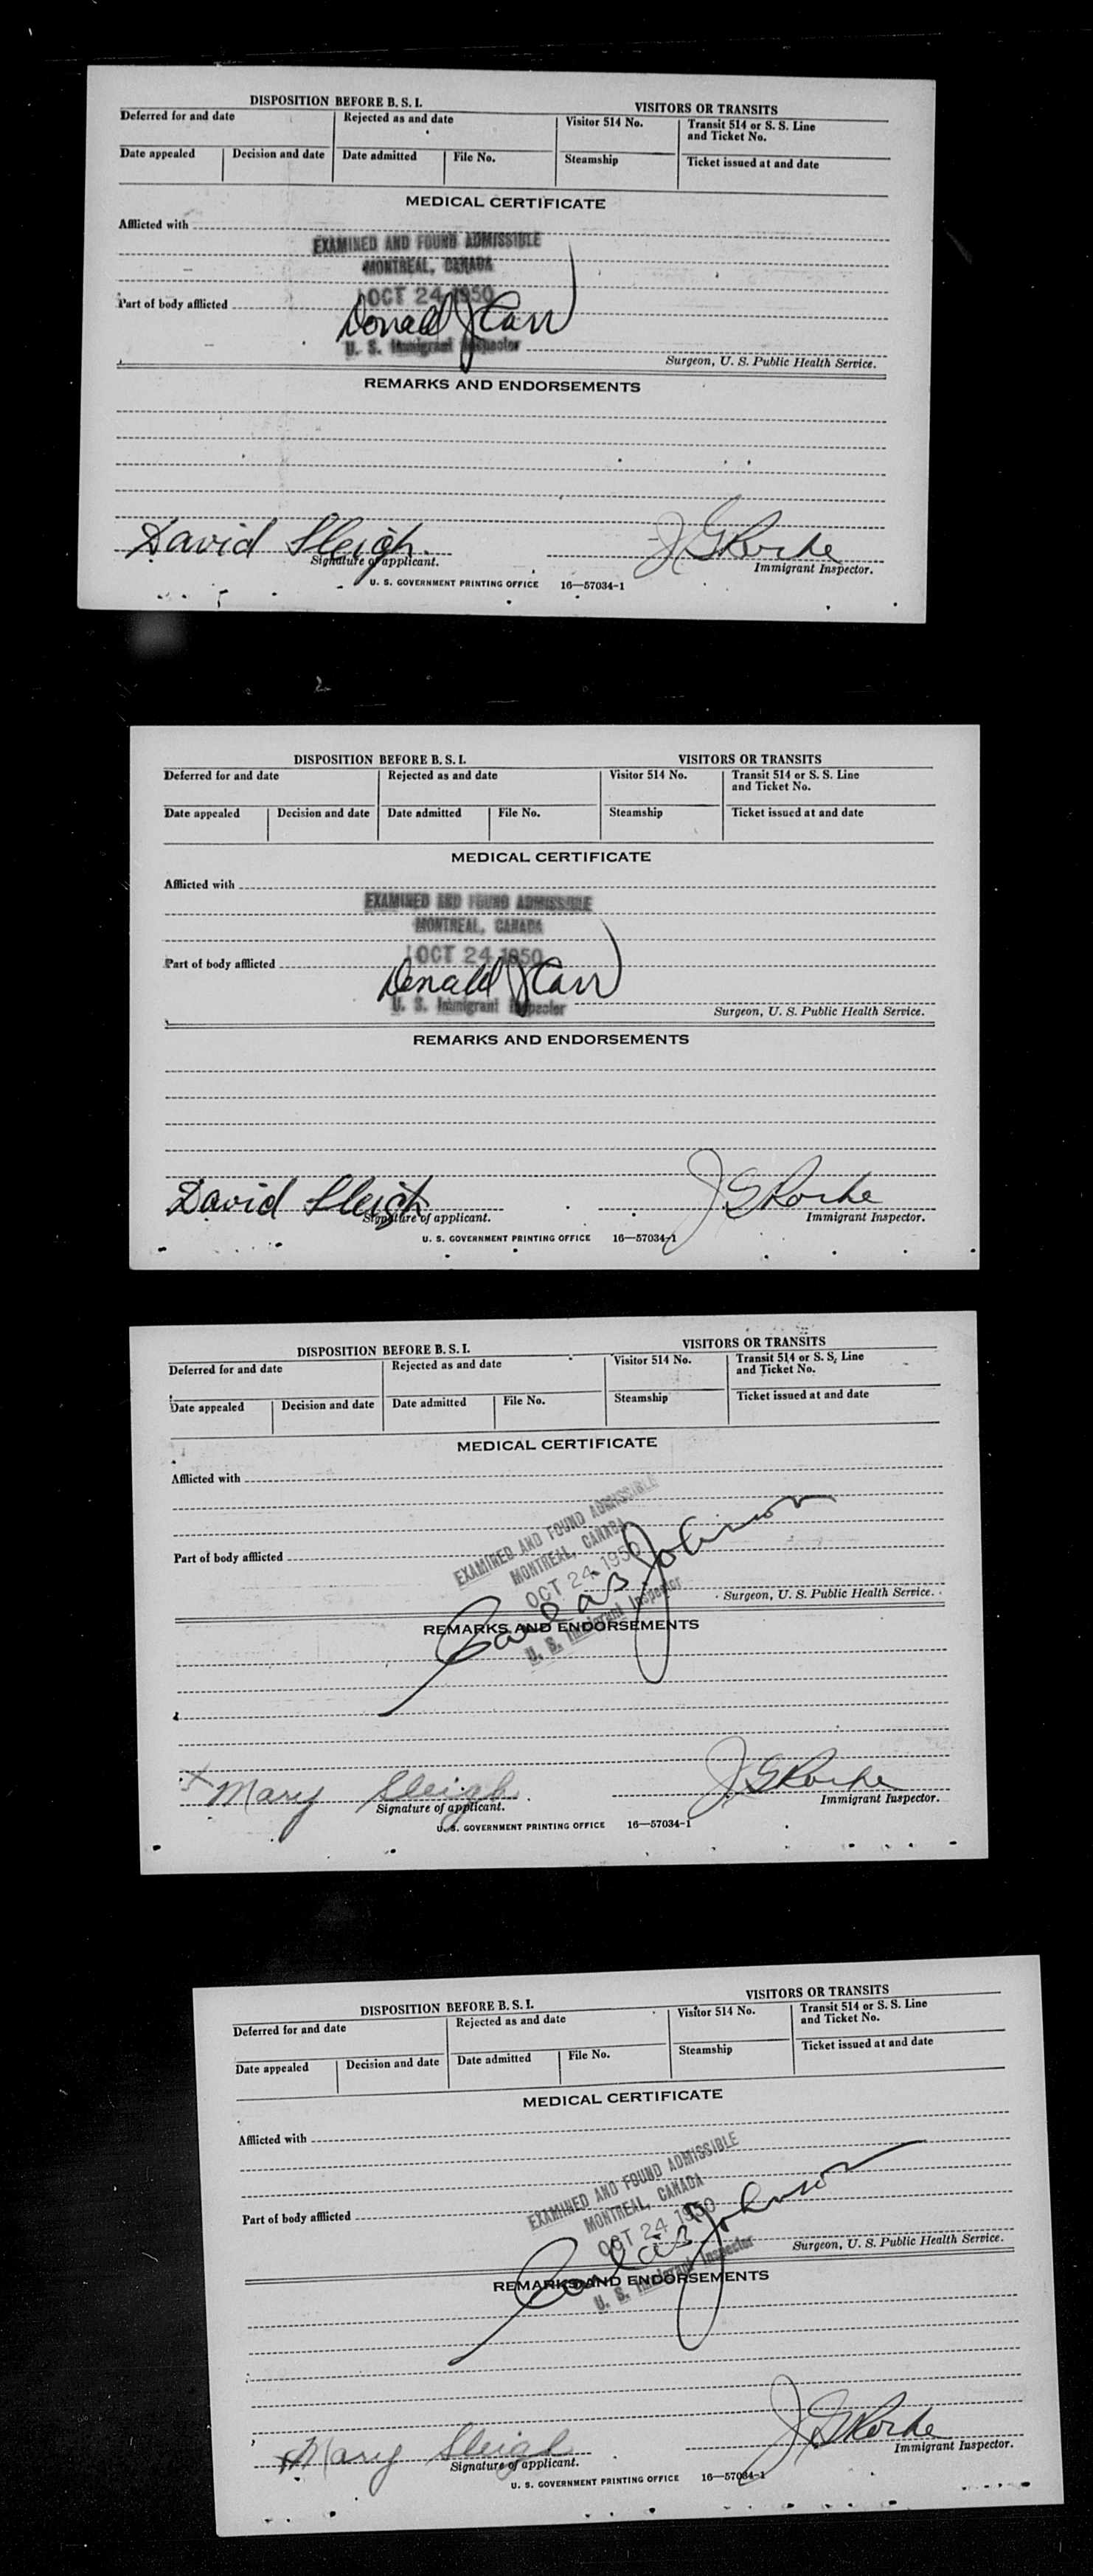 DISPOSITION BEFORE B. S. I.
VISITORS OR TRANSITS
Deferred for and date
Rejected as and date
Visitor 514 No.
Transit 514 or S. S. Line
and Ticket No.
Date appealed
Decision and date
Date admitted
File No.
Steamship
Ticket issued at and date
MEDICAL CERTIFICATE
Afflicted with
EXAMINED AND FOUND ADMISSIBLE
MONTREAL, CANADA
OCT 24 1950
Part of body afflicted
Donald J Carr
U. S. Immigrant Inspector
Surgeon, U. S. Public Health Service.
REMARKS AND ENDORSEMENTS
David Sleigh
Signature of applicant.
Immigrant Inspector.
U. S. GOVERNMENT PRINTING OFFICE 16—57034-1
DISPOSITION BEFORE B. S. I.
VISITORS OR TRANSITS
Deferred for and date
Rejected as and date
Visitor 514 No.
Transit 514 or S. S. Line
and Ticket No.
Date appealed
Decision and date
Date admitted
File No.
Steamship
Ticket issued at and date
MEDICAL CERTIFICATE
Afflicted with
EXAMINED AND FOUND ADMISSIBLE
MONTREAL, CANADA
OCT 24 1950
Part of body afflicted
Donald J Carr
U. S. Immigrant Inspector
Surgeon, U. S. Public Health Service.
REMARKS AND ENDORSEMENTS
David Sleigh
Signature of applicant.
Immigrant Inspector.
U. S. GOVERNMENT PRINTING OFFICE 16—57034-1
DISPOSITION BEFORE B. S. I.
VISITORS OR TRANSITS
Deferred for and date
Rejected as and date
Visitor 514 No.
Transit 514 or S. S. Line
and Ticket No.
Date appealed
Decision and date
Date admitted
File No.
Steamship
Ticket issued at and date
MEDICAL CERTIFICATE
Afflicted with
EXAMINED AND FOUND ADMISSIBLE
MONTREAL, CANADA
OCT 24 1950
Part of body afflicted
Johnson
U. S. Immigrant Inspector
Surgeon, U. S. Public Health Service.
REMARKS AND ENDORSEMENTS
x Mary Sleigh
Signature of applicant.
Immigrant Inspector.
U. S. GOVERNMENT PRINTING OFFICE 16—57034-1
DISPOSITION BEFORE B. S. I.
VISITORS OR TRANSITS
Deferred for and date
Rejected as and date
Visitor 514 No.
Transit 514 or S. S. Line
and Ticket No.
Date appealed
Decision and date
Date admitted
File No.
Steamship
Ticket issued at and date
MEDICAL CERTIFICATE
Afflicted with
EXAMINED AND FOUND ADMISSIBLE
MONTREAL, CANADA
OCT 24 1950
Part of body afflicted
Johnson
U. S. Immigrant Inspector
Surgeon, U. S. Public Health Service.
REMARKS AND ENDORSEMENTS
x Mary Sleigh
Signature of applicant.
Immigrant Inspector.
U. S. GOVERNMENT PRINTING OFFICE 16—57034-1